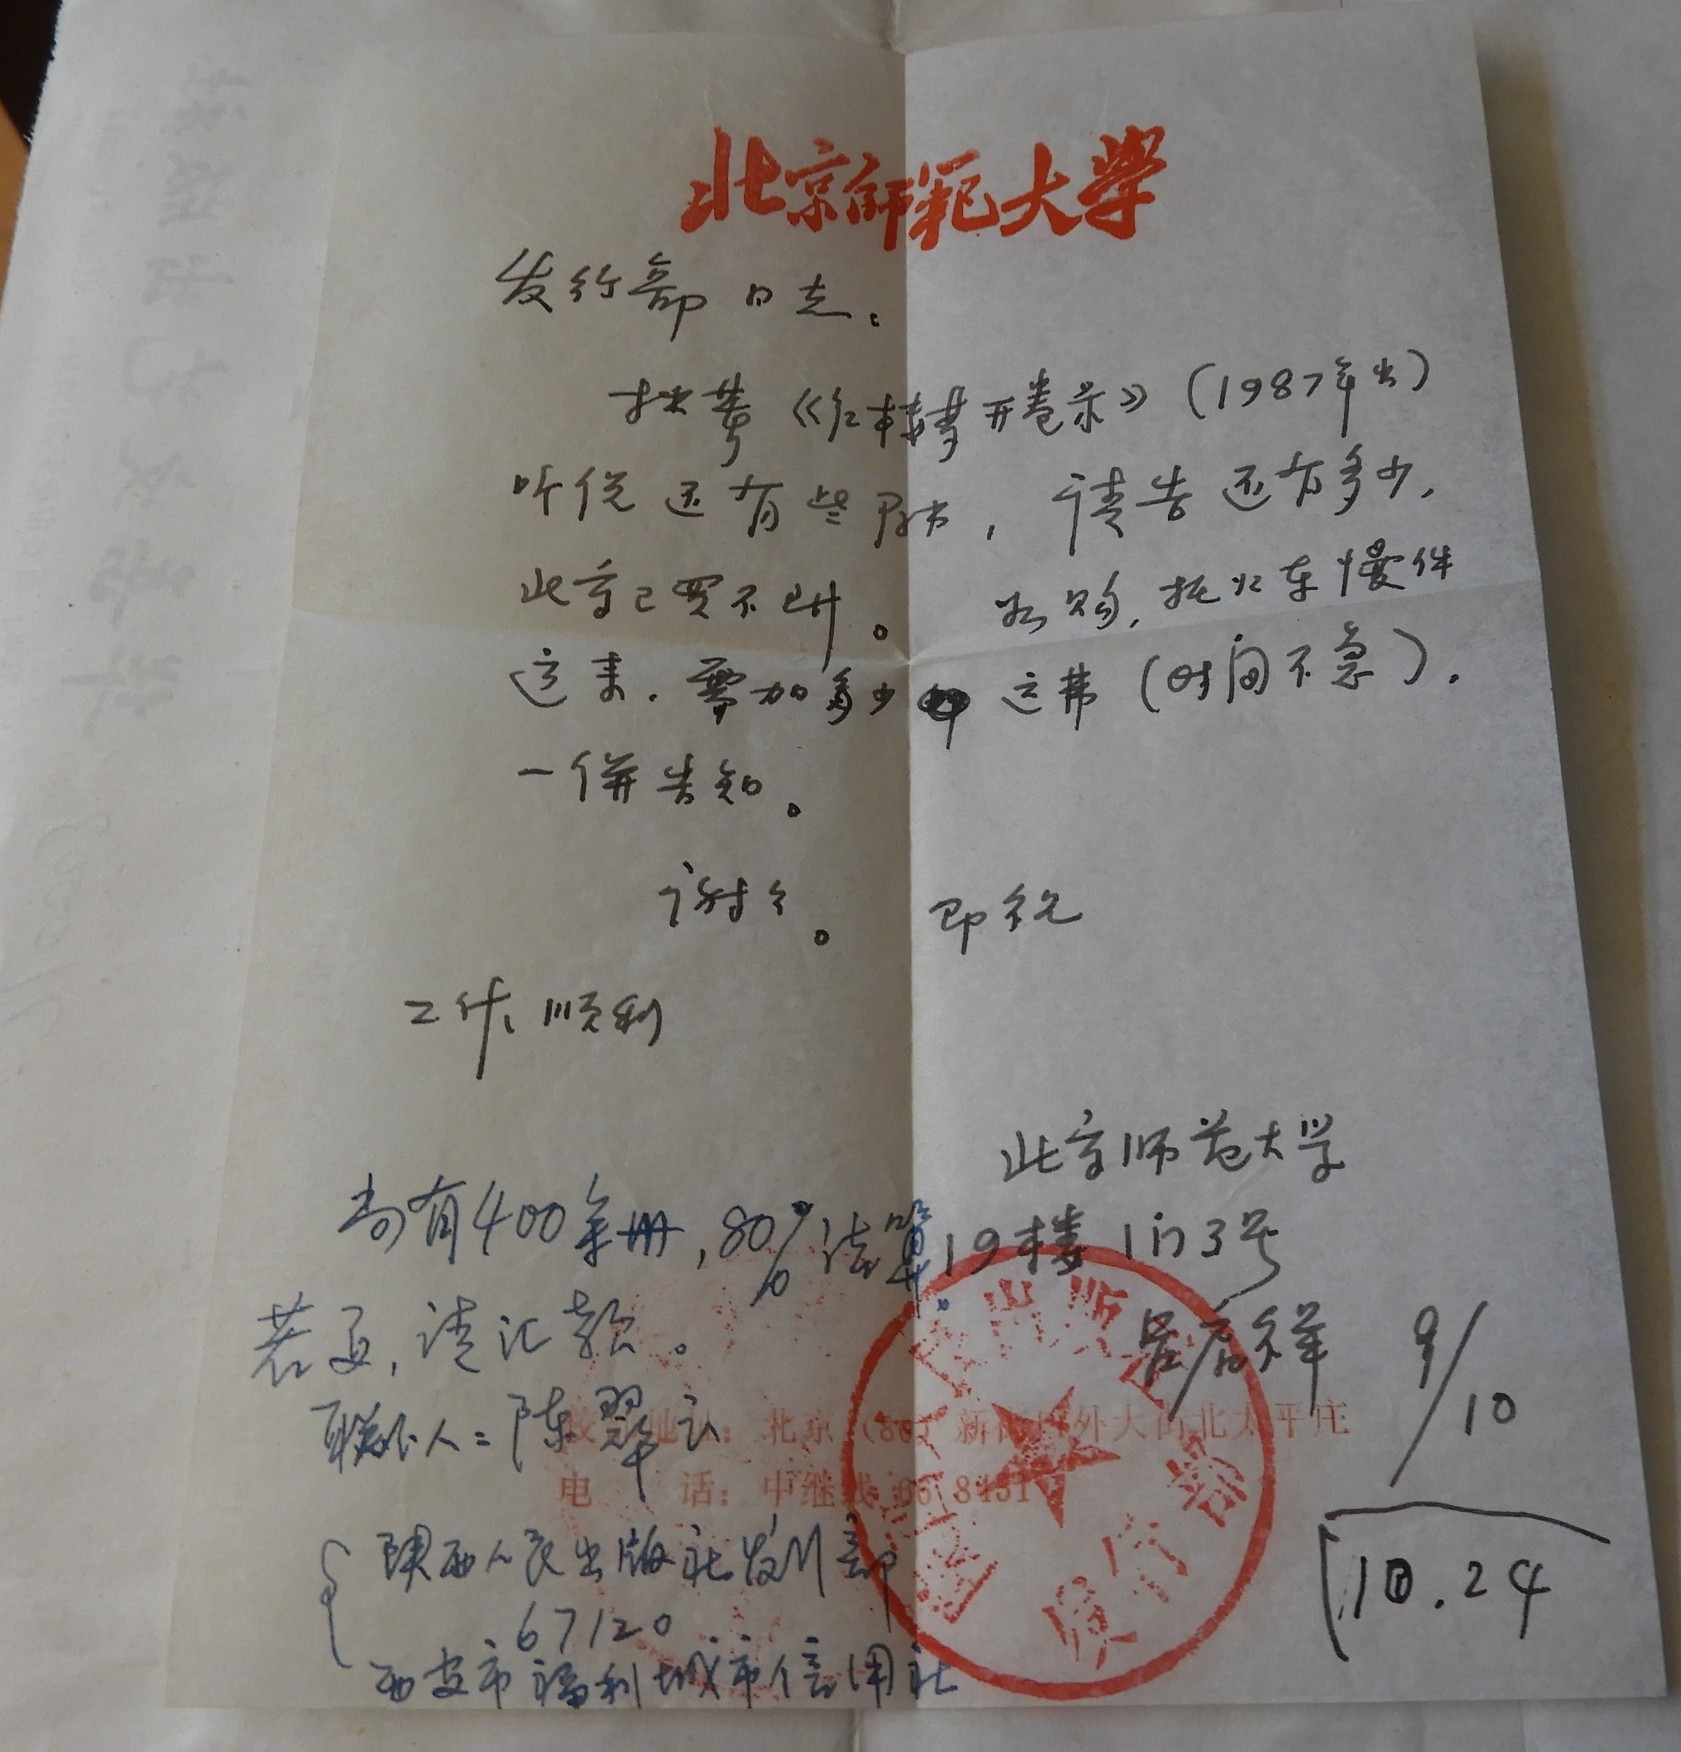 北京师范大学
发行部同志。
拙著《红楼梦开卷录》（1987年出）
听说还有些存书，请告还有多少，
北京已买不到。如购，托火车慢件
运来，需加多少运费（时间不急）。
一併告知。
谢谢。 即祝
工作顺利
北京师范大学
19楼1门3号
吕启祥 9/10
10.24
尚有400余册，80%结算。
若要，请汇款。
联系人：陈翠
陕西人民出版社发行部
67120
西安市福利城市信用社
地址：北京（88）新街口外大街北太平庄
电 话：中继线 66 8451
发行部